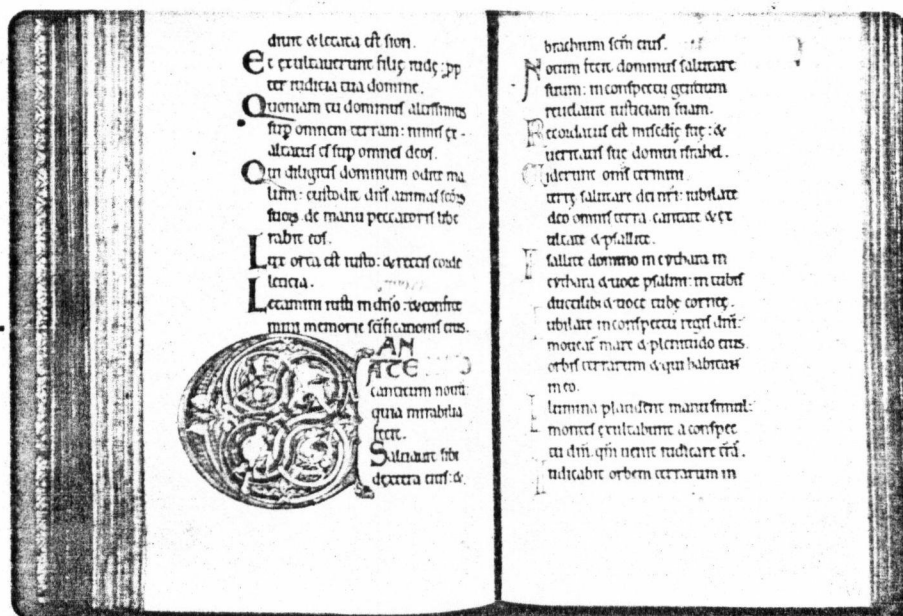 diunt & letata est sion.
Et exultaverunt filie iude: pp
ter iudicia tua domine.
Quoniam tu dominus altissimus
sup omnem terram: nimis ex-
altatus es sup omnes deos.
Qui diligitis dominum odite ma
lum: custodit dns animas scoꝝ
suoꝝ de manu peccatoris libe
rabit eos.
Lux orta est iusto: & rectis corde
leticia.
Letamini iusti in dno: & confite
mini memorie scificationis eius.
CAN
TATE
canticum novu
quia mirabilia
fecit.
Salvavit sibi
dextera eius: &
brachium scm eius.
Notum fecit dominus salutare
suum: in conspectu gentium
revelavit iusticiam suam.
Recordatus est misedie sue: &
veritatis sue domui israhel.
Viderunt omis termini
terre salutare dei nri: iubilate
deo omnis terra cantate & ex
ultate & psallite.
Psallite domino in cythara in
cythara & voce psalmi: in tubis
ductilib; & voce tube cornee.
Iubilate in conspectu regis dni:
moveat mare & plenitudo eius.
orbis terrarum & qui habitant
in eo.
Flumina plaudent manu simul:
montes exultabunt a conspec
tu dni. qm venit iudicare tra.
Iudicabit orbem terrarum in